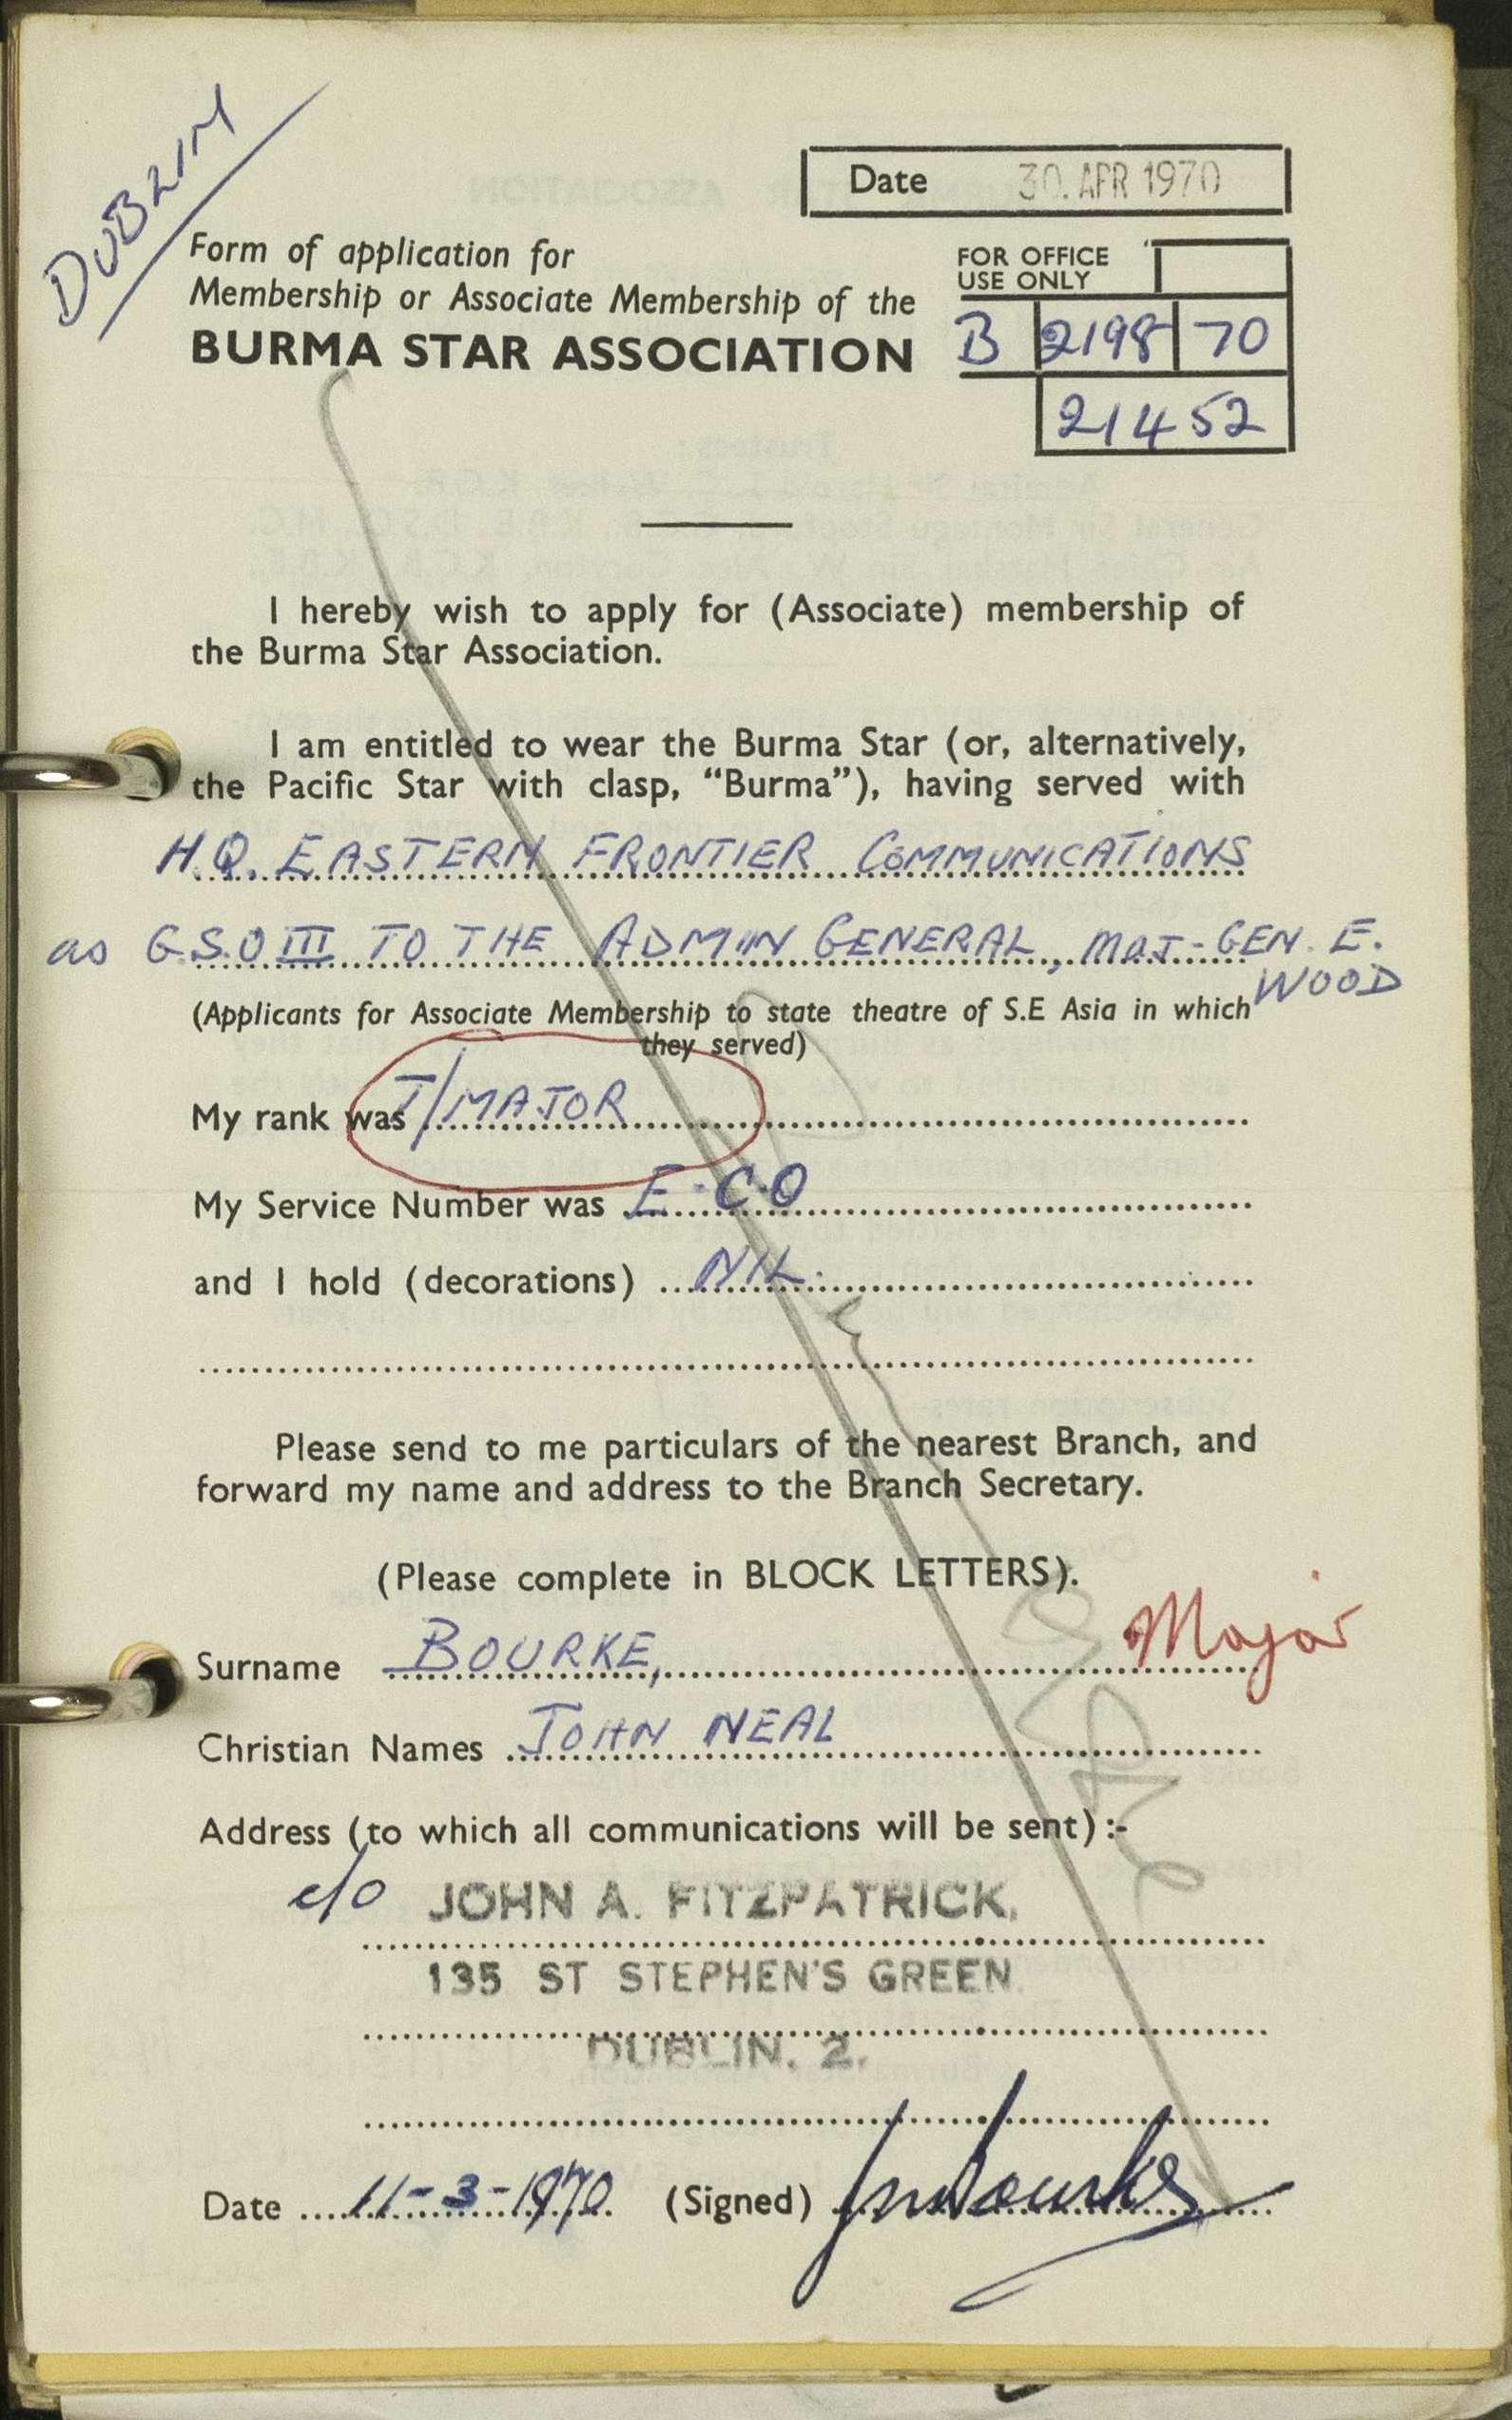 DUBLIN
Date 30. APR 1970
Form of application for
Membership or Associate Membership of the
BURMA STAR ASSOCIATION
FOR OFFICE
USE ONLY
B 2198 70
21452
I hereby wish to apply for (Associate) membership of
the Burma Star Association.
I am entitled to wear the Burma Star (or, alternatively,
the Pacific Star with clasp, “Burma”), having served with
H.Q. EASTERN FRONTIER COMMUNICATIONS
as G.S.O III TO THE ADMIN GENERAL, MAJ-GEN. E.
WOOD
(Applicants for Associate Membership to state theatre of S.E Asia in which
they served)
My rank was T/MAJOR
My Service Number was E.C.O
and I hold (decorations) NIL.
Please send to me particulars of the nearest Branch, and
forward my name and address to the Branch Secretary.
(Please complete in BLOCK LETTERS).
Surname BOURKE, Major
Christian Names JOHN NEAL
Address (to which all communications will be sent) :-
c/o JOHN A. FITZPATRICK,
135 ST STEPHEN'S GREEN
DUBLIN. 2.
Date 11-3-1970 (Signed) JNBourke